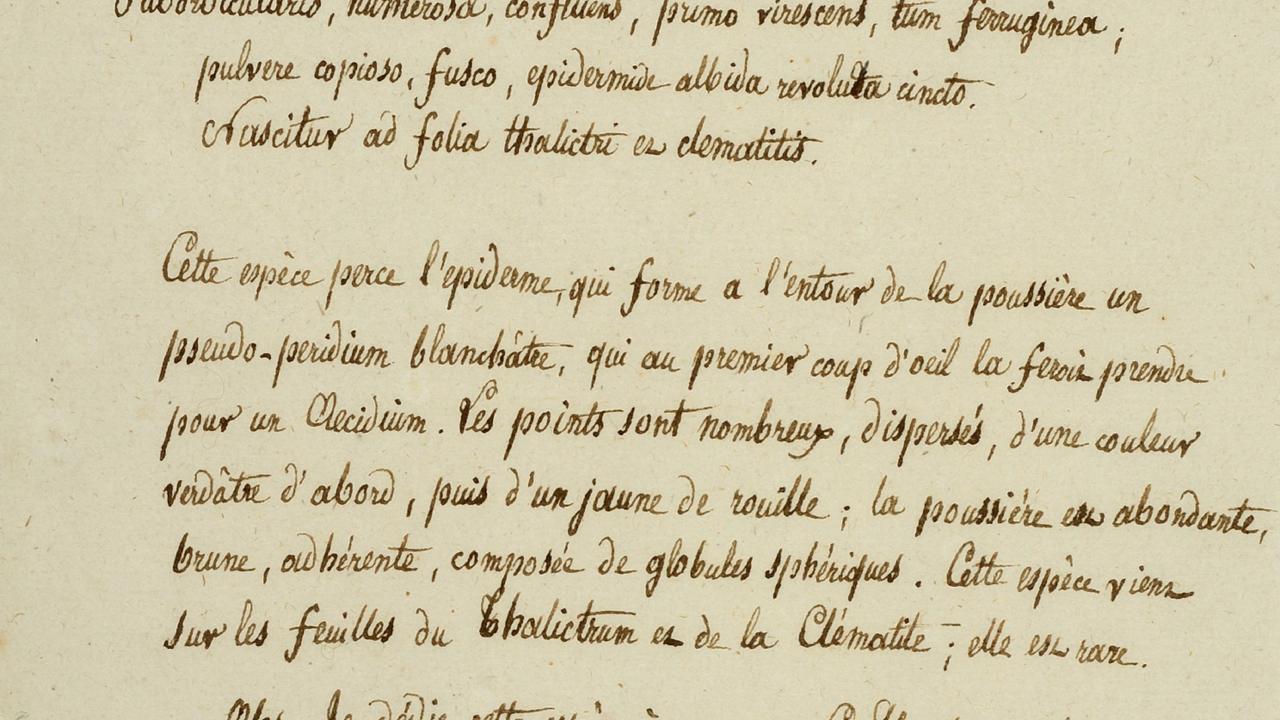 Suborbicularis, numerosa, confluens, primo virescens, tum ferruginea ;
pulvere copioso, fusco, epidermide albida revoluta cincto.
Nascitur ad folia thalictri et clematitis.
Cette espèce perce l'epiderme, qui forme a l'entour de la poussière un
pseudo-peridium blanchâtre, qui au premier coup d'oeil la feroit prendre
pour un Aecidium. Les points sont nombreux, dispersés, d'une couleur
verdâtre d'abord, puis d'un jaune de rouille ; la poussière est abondante,
brune, adhérente, composée de globules sphériques. Cette espèce vient
sur les feuilles du Thalictrum et de la Clématite ; elle est rare.
Je dédie cette